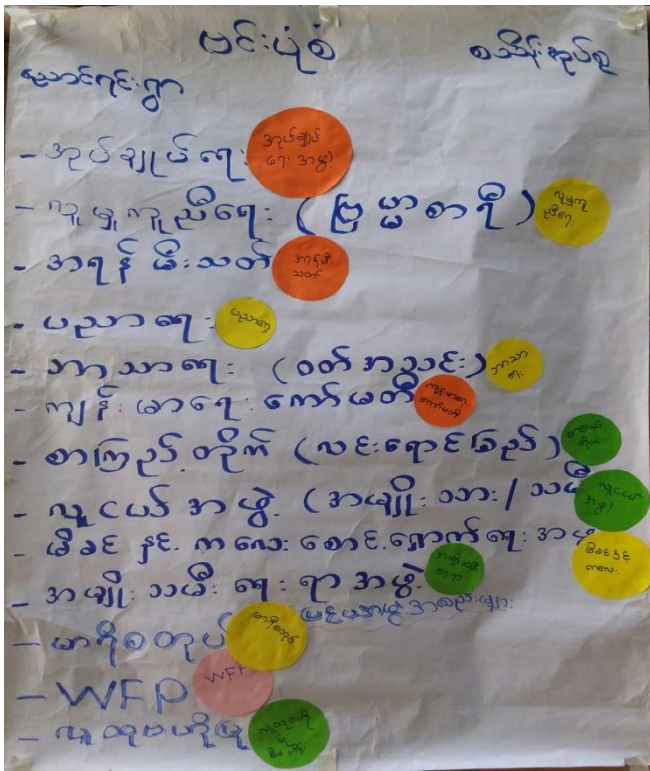 ဗင်းပုံစံ
ညောင်ရင်းရွာ
- အုပ်ချုပ်ရေး အုပ်ချုပ်ရေး အဖွဲ့
- လူမှုကူညီရေး (ဗြဟ္မာစာရီ) လူမှုကူညီရေး
- အရန် မီးသတ် အရန်မီးသတ်
- ပညာရေး ပညာရေး
- ဘာသာရေး (ဝတ်အသင်း) ဘာသာရေး
- ကျန်းမာရေး ကော်မတီ ကျန်းမာရေး ကော်မတီ
- စာကြည့်တိုက် (လင်းရောင်ခြည်) စာကြည့်တိုက်
- လူငယ် အဖွဲ့ (အမျိုးသား/သမီး) လူငယ်အဖွဲ့
- မိခင် နှင့် ကလေး စောင့်ရှောက်ရေး အဖွဲ့ မိခင်နှင့် ကလေး
- အမျိုးသမီးရေးရာအဖွဲ့
ပြင်ပအဖွဲ့အစည်းများ
- မာရီစတုပ် မာရီစတုပ်
- WFP WFP
- လူထုဗဟိုပြု